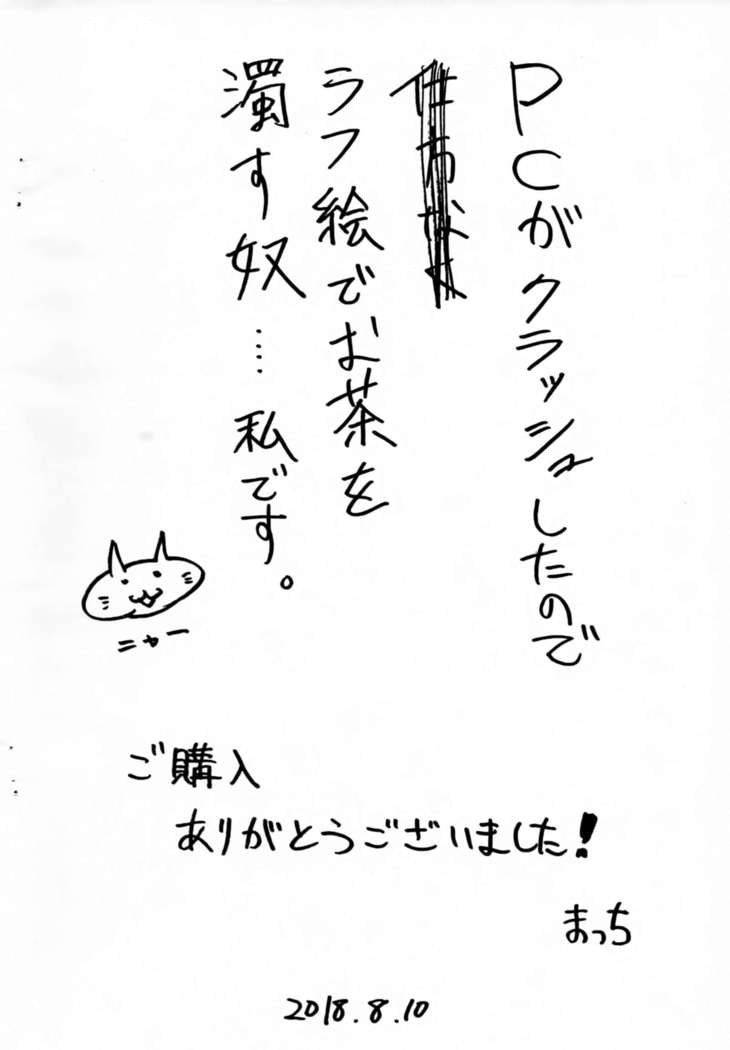 PCがクラッシュしたので
ラフ絵でお茶を
濁す奴…… 私です。
ニャー
ご購入
ありがとうございました!
まっち
2018.8.10